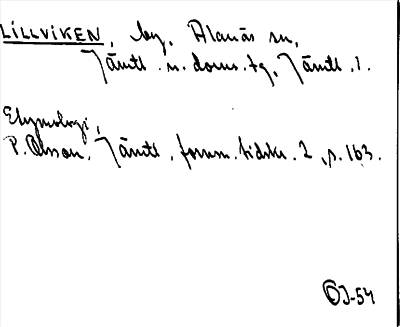 LILLVIKEN, by, Alanäs sn,
Jämtl. n. doms. tg, Jämtl. l.
Etymologi,
P. Olsson. Jämtl. fornm. tidskr. 2, s. 163.
ÖJ-54